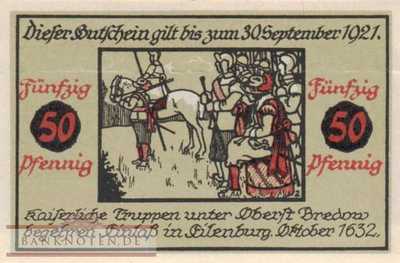 Dieser Gutschein gilt bis zum 30 September 1921.
Fünfzig
50
Pfennig
Fünfzig
50
Pfennig
Kaiserliche Truppen unter Oberst Bredow
begehren Einlaß in Eilenburg. Oktober 1632.
BANKNOTEN.DE